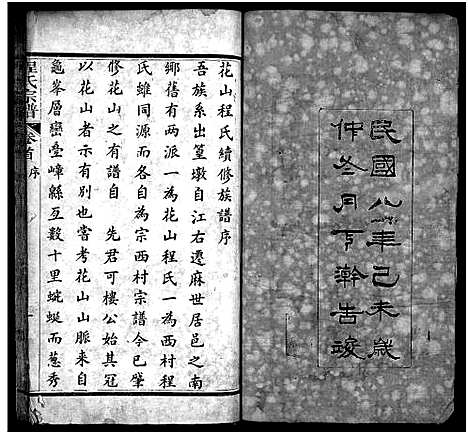 民國八年己未歲
仲冬月下澣告竣
花山程氏續修族譜序
吾族系出篁墩自江右遷麻世居邑之南
鄉舊有兩派一為花山程氏一為西村程
氏雖同源而各自為宗西村宗譜今已肇
修花山之有譜自 先君可樓公始其冠
以花山者示有別也嘗考花山山脈來自
龜峯層巒疊嶂縣亙數十里蜿蜒而蔥秀
程氏宗譜 卷首 序 一